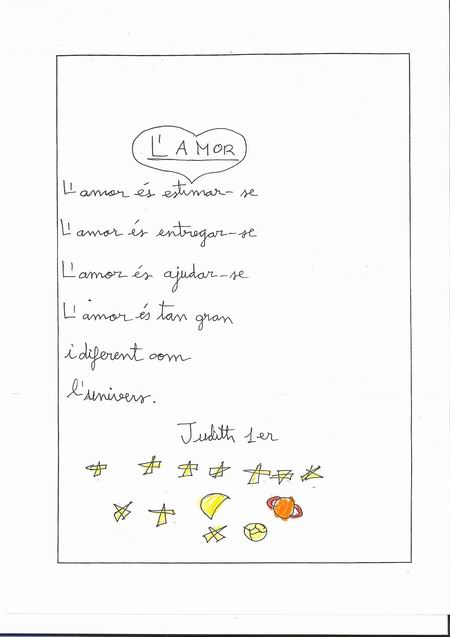 L'AMOR
L'amor és estimar-se
L'amor és entregar-se
L'amor és ajudar-se
L'amor és tan gran
i diferent com
l'univers.
Judith 1er